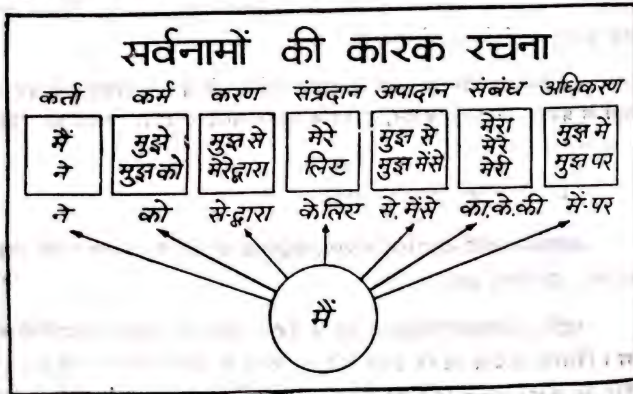 सर्वनामों की कारक रचना
कर्ता कर्म करण संप्रदान अपादान संबंध अधिकरण
मैं ने
मुझे मुझ को
मुझ से मेरे द्वारा
मेरे लिए
मुझ से मुझ मेंसे
मेरा मेरे मेरी
मुझ में मुझ पर
ने को से-द्वारा के लिए से. मेंसे का.के.की में-पर
मैं